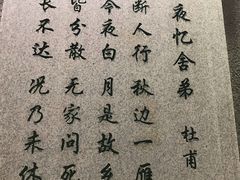 夜忆舍弟
杜甫
断人行 秋边一雁
今夜白 月是故乡
皆分散 无家问死
长不达 况乃未休